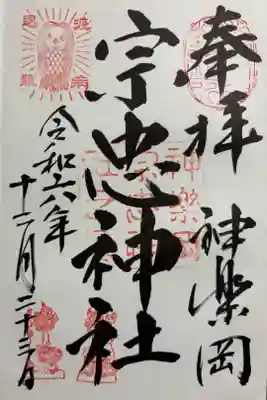 奉拝
神楽岡
宗忠神社
令和六年
十二月二十三日